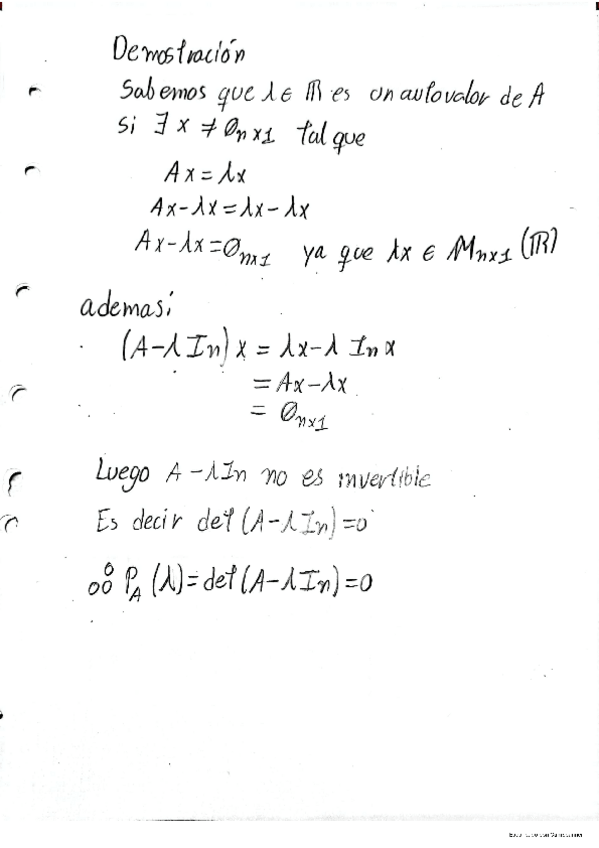 Demostración
Sabemos que λ ∈ ℝ es un autovalor de A
si ∃ x ≠ 0ₙₓ₁ tal que
Ax = λx
Ax-λx = λx-λx
Ax-λx = 0ₙₓ₁ ya que λx ∈ Mₙₓ₁(ℝ)
ademas:
(A-λIn)x = λx-λ In x
= Ax-λx
= 0ₙₓ₁
Luego A-λIn no es invertible
Es decir det(A-λIn)=0
∴ P_A(λ)=det(A-λIn)=0